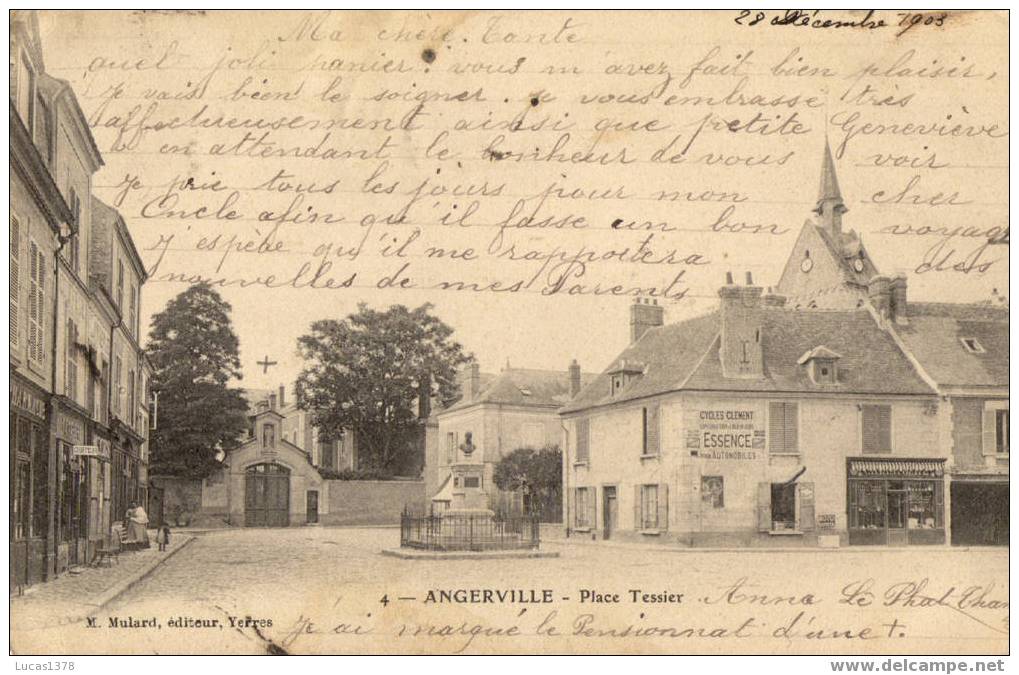 28 Décembre 1903
Ma chère Tante
quel joli panier. vous m'avez fait bien plaisir,
Je vais bien le soigner. Je vous embrasse très
affectueusement ainsi que petite Geneviève
en attendant le bonheur de vous voir
Je prie tous les jours pour mon cher
Oncle afin qu'il fasse un bon voyage
J'espère qu'il me rapportera des
nouvelles de mes Parents
CYCLES CLEMENT
ESSENCE
POUR AUTOMOBILES
4 — ANGERVILLE - Place Tessier
Anna Le Phat
M. Mulard, éditeur, Yerres
J'ai marqué le Pensionnat d'une +.
Lucas1378
www.delcampe.net